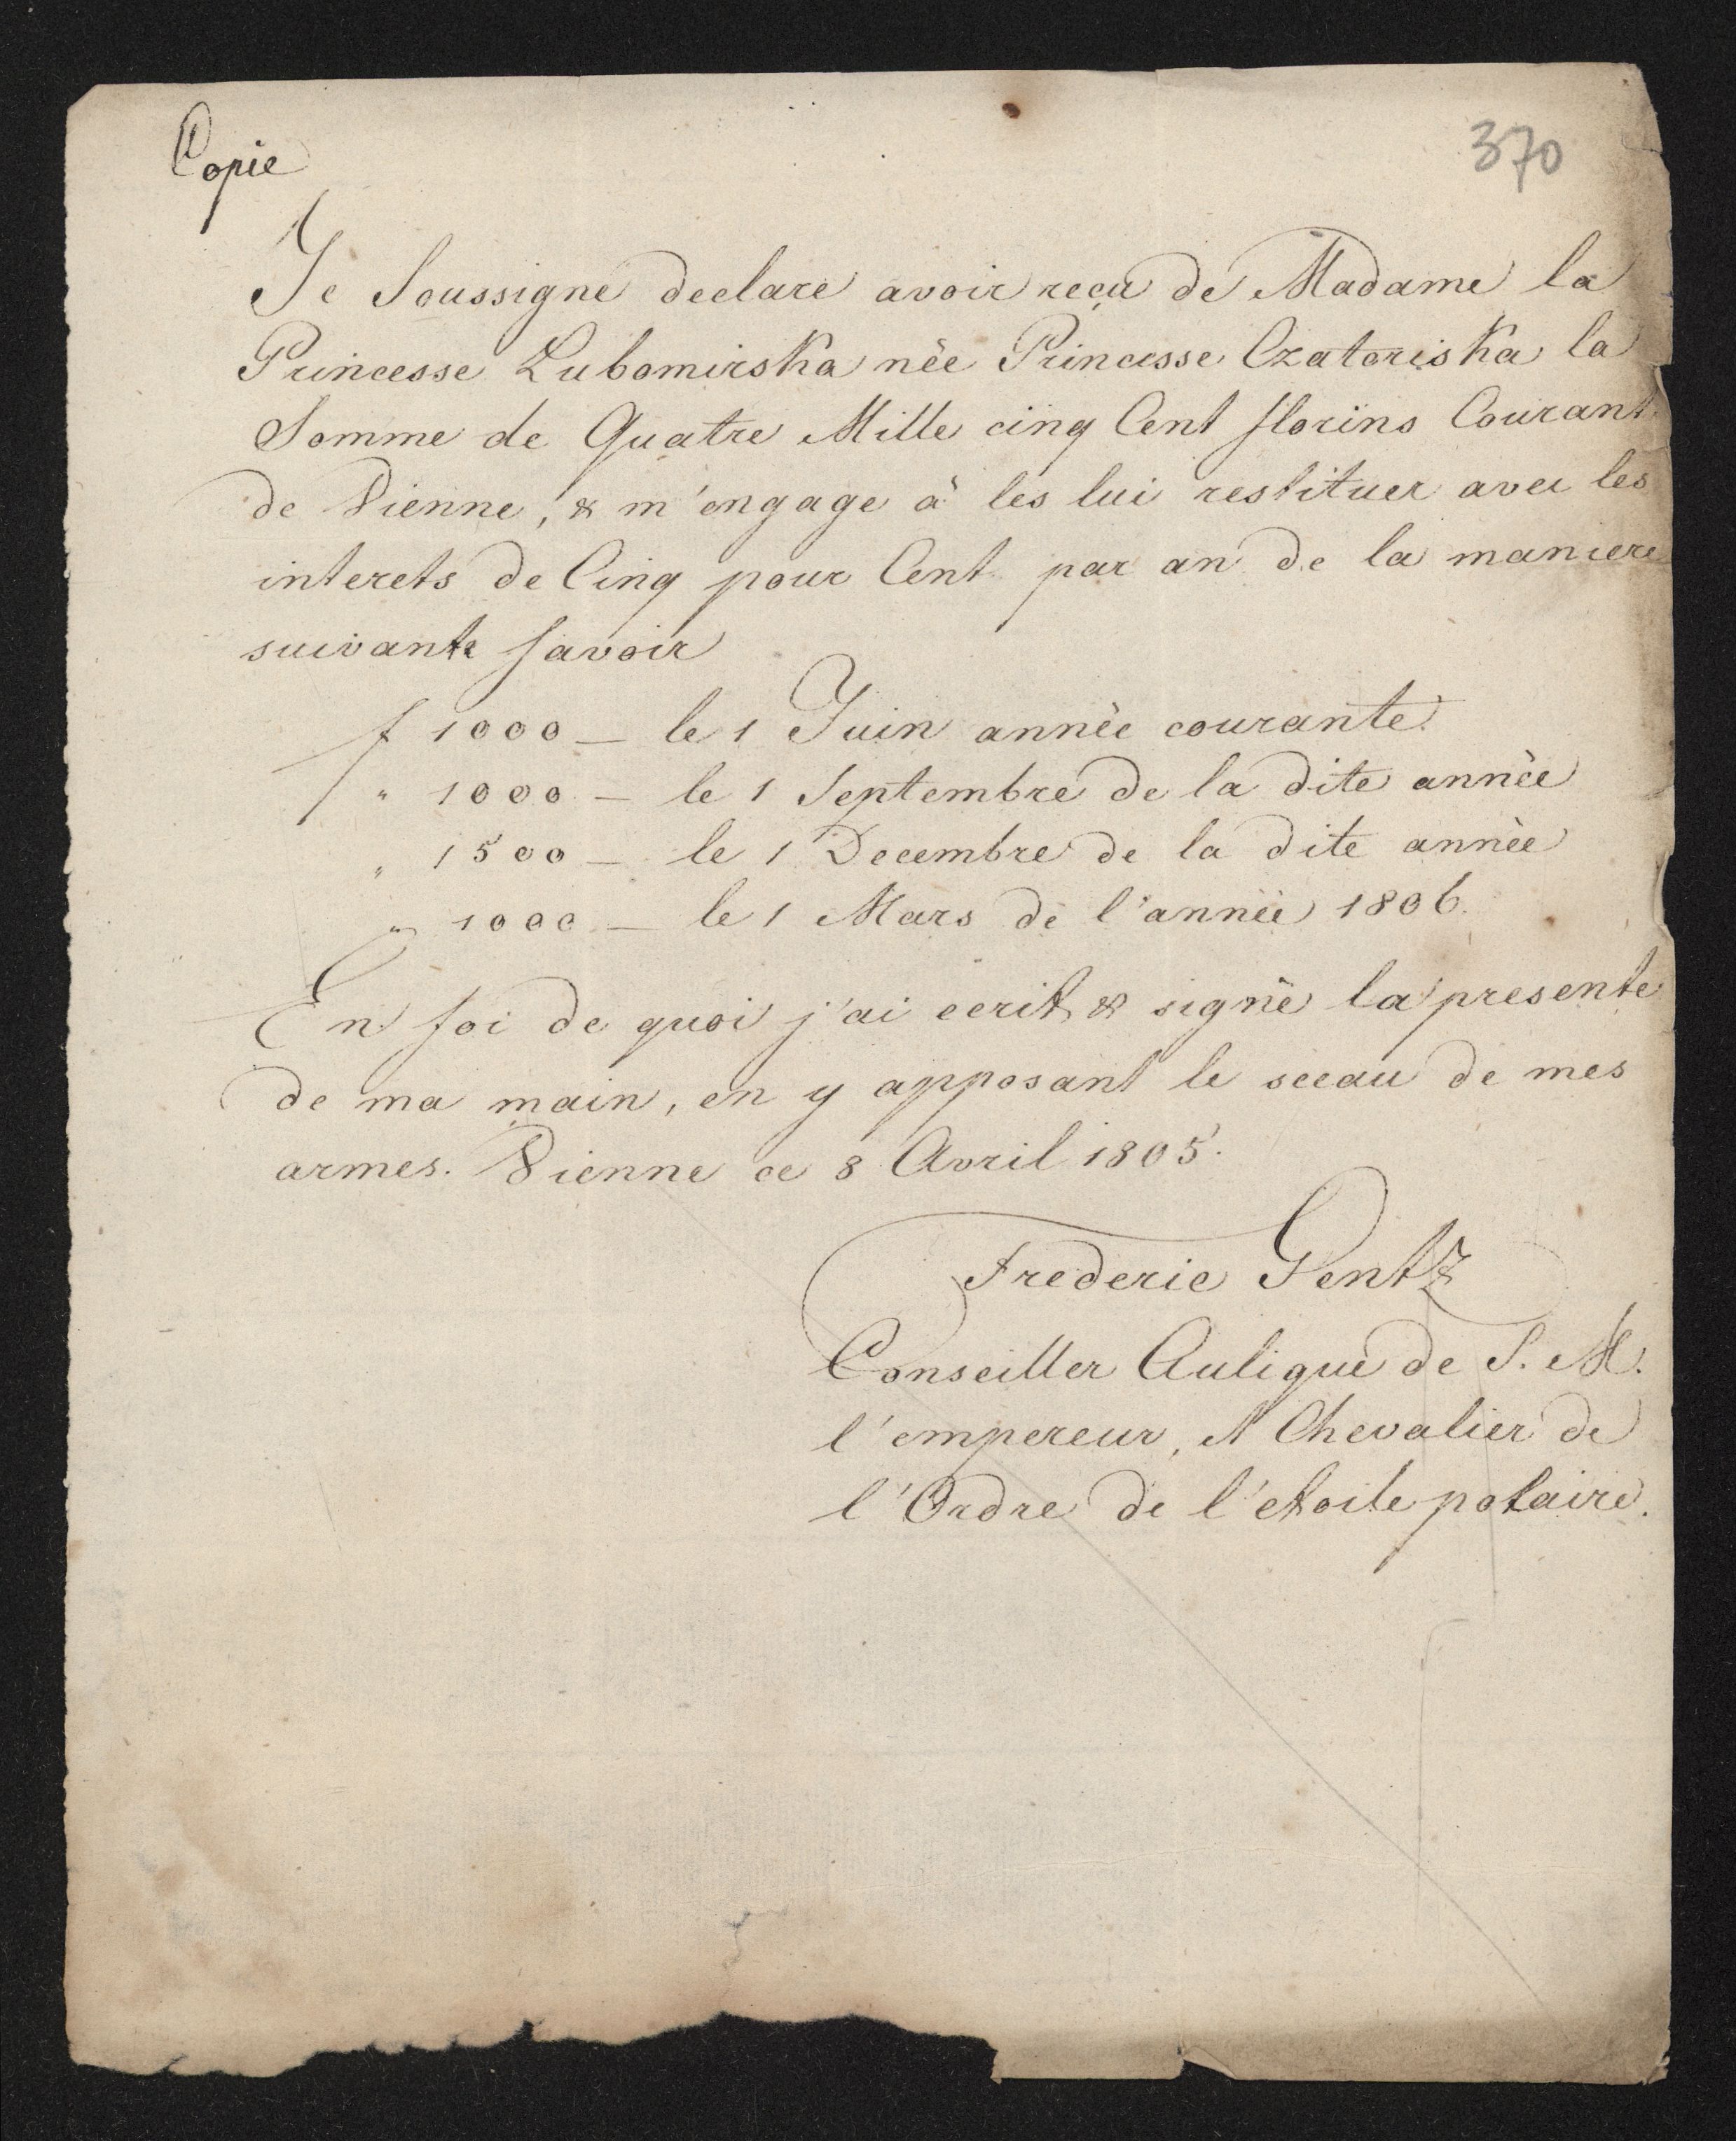 Copie
370
Je Soussigné declare avoir reçu de Madame la
Princesse Lubomirska née Princesse Czatoriska la
Somme de Quatre Mille cinq Cent florins Courant
de Vienne, & m'engage à les lui restituer avec les
interets de Cinq pour Cent par an de la maniere
suivante Savoir
f 1000 — le 1 Juin année courante.
" 1000 — le 1 Septembre de la dite année
" 1500 — le 1 Decembre de la dite année
" 1000 — le 1 Mars de l'année 1806.
En foi de quoi j'ai ecrit & signé la presente
de ma main, en y apposant le sceau de mes
armes. Vienne ce 8 Avril 1805.
Frederic Gentz
Conseiller Aulique de S. M.
l'empereur, et Chevalier de
l'Ordre de l'etoile polaire.